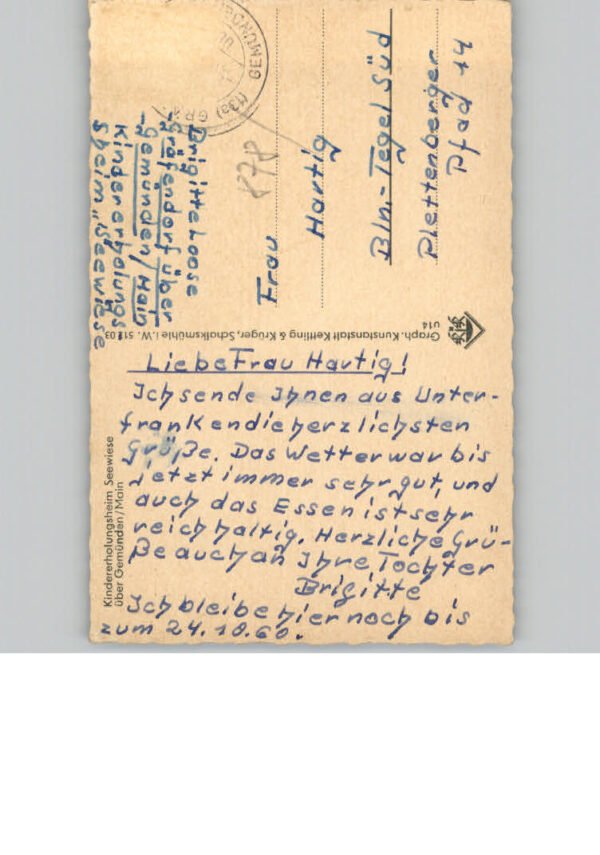 Liebe Frau Hartig!
Ich sende Ihnen aus Unter-
franken die herzlichsten
Grüße. Das Wetter war bis
jetzt immer sehr gut, und
auch das Essen ist sehr
reichhaltig. Herzliche Grü-
ße auch an Ihre Tochter
Brigitte
Ich bleibe hier noch bis
zum 24.10.60.
Kindererholungsheim Seewiese
über Gemünden/Main
Graph. Kunstanstalt Kettling & Krüger, Schalksmühle i.W.
U14
Brigitte Loose
Gräfendorf über
Gemünden/Main
Kindererholungs
heim „Seewiese
878
Frau
Hartig
Bln.-Tegel Süd
Plettenberger
Pfad 44
(13a) GRÄ